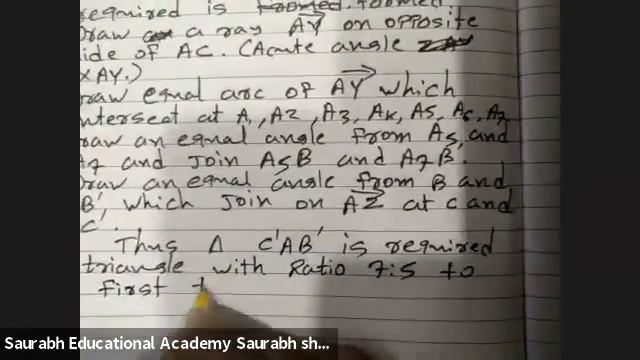 required is
Draw a ray AY on opposite
side of AC. (Acute angle
XAY.)
Draw equal arc of AY which
intersect at A1, A2, A3, A4, A5, A6, A7
Draw an equal angle from A5, and
A7 and Join A5B and A7B'.
Draw an equal angle from B and
B', which Join on AZ at C and
C'.
Thus Δ C'AB' is required
triangle with Ratio 7:5 to
first
Saurabh Educational Academy Saurabh sh...